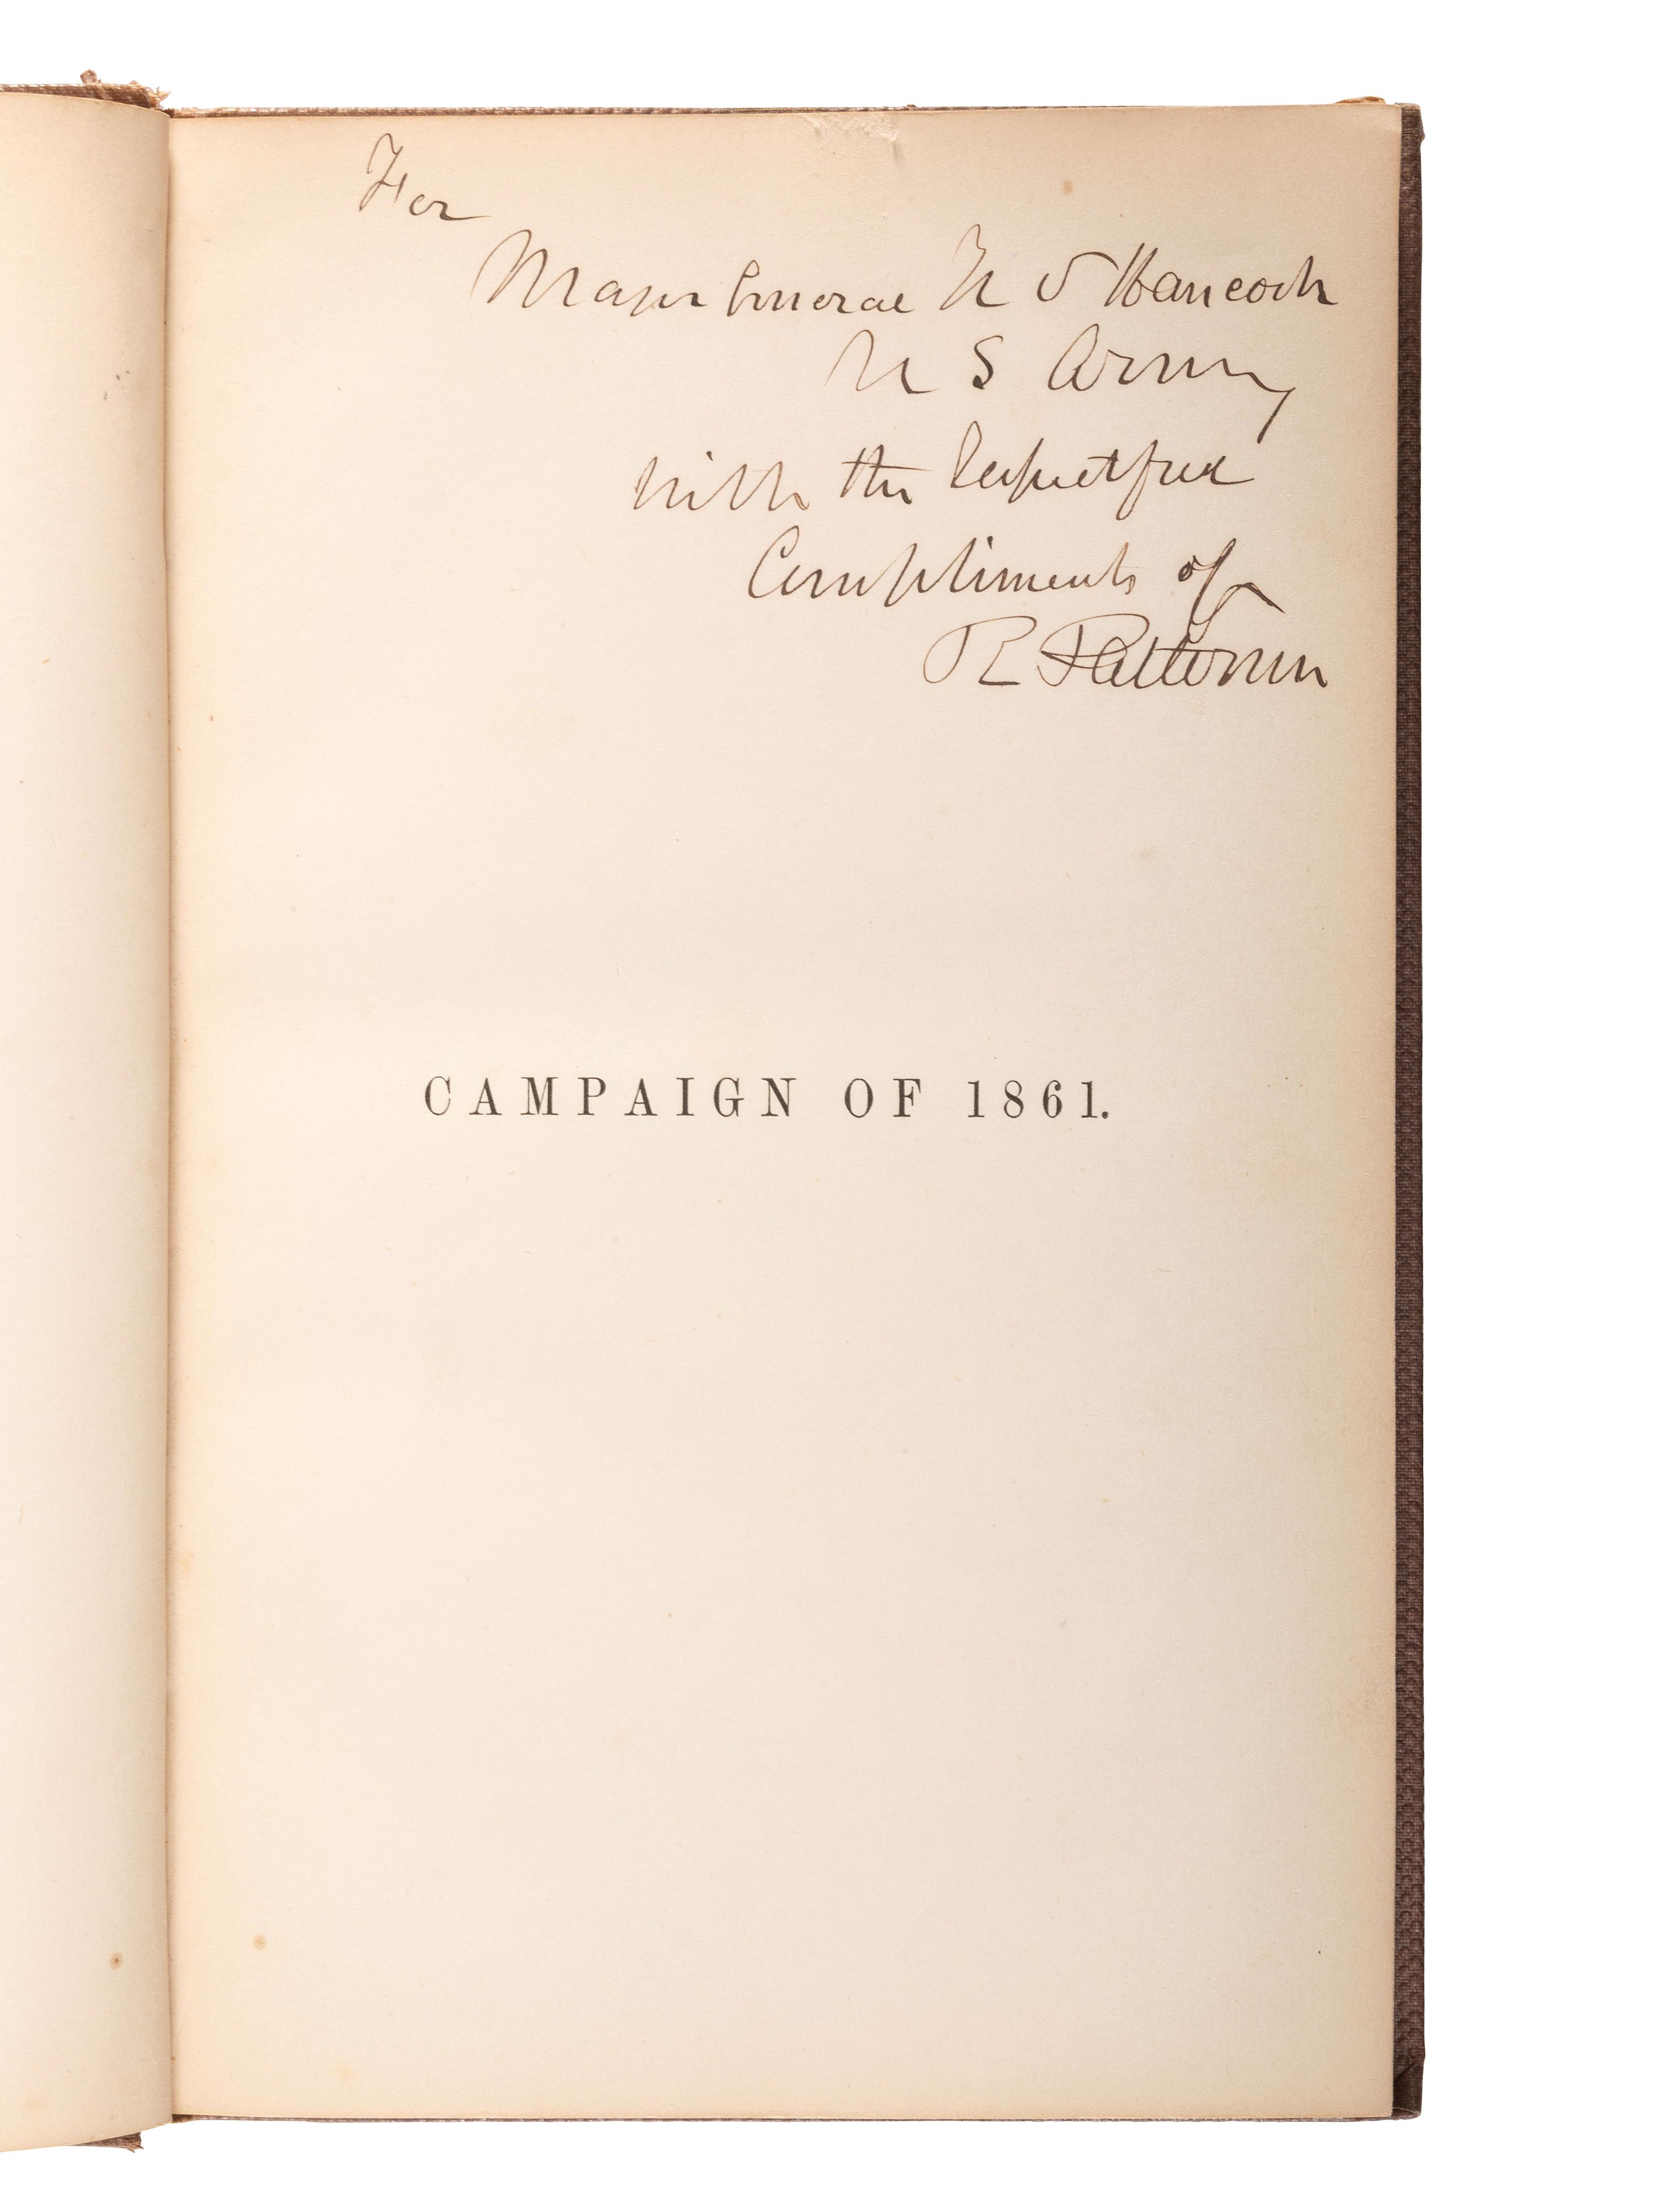 For
Major General W S Hancock
U S Army
with the respectful
Compliments of
R Patterson
CAMPAIGN OF 1861.